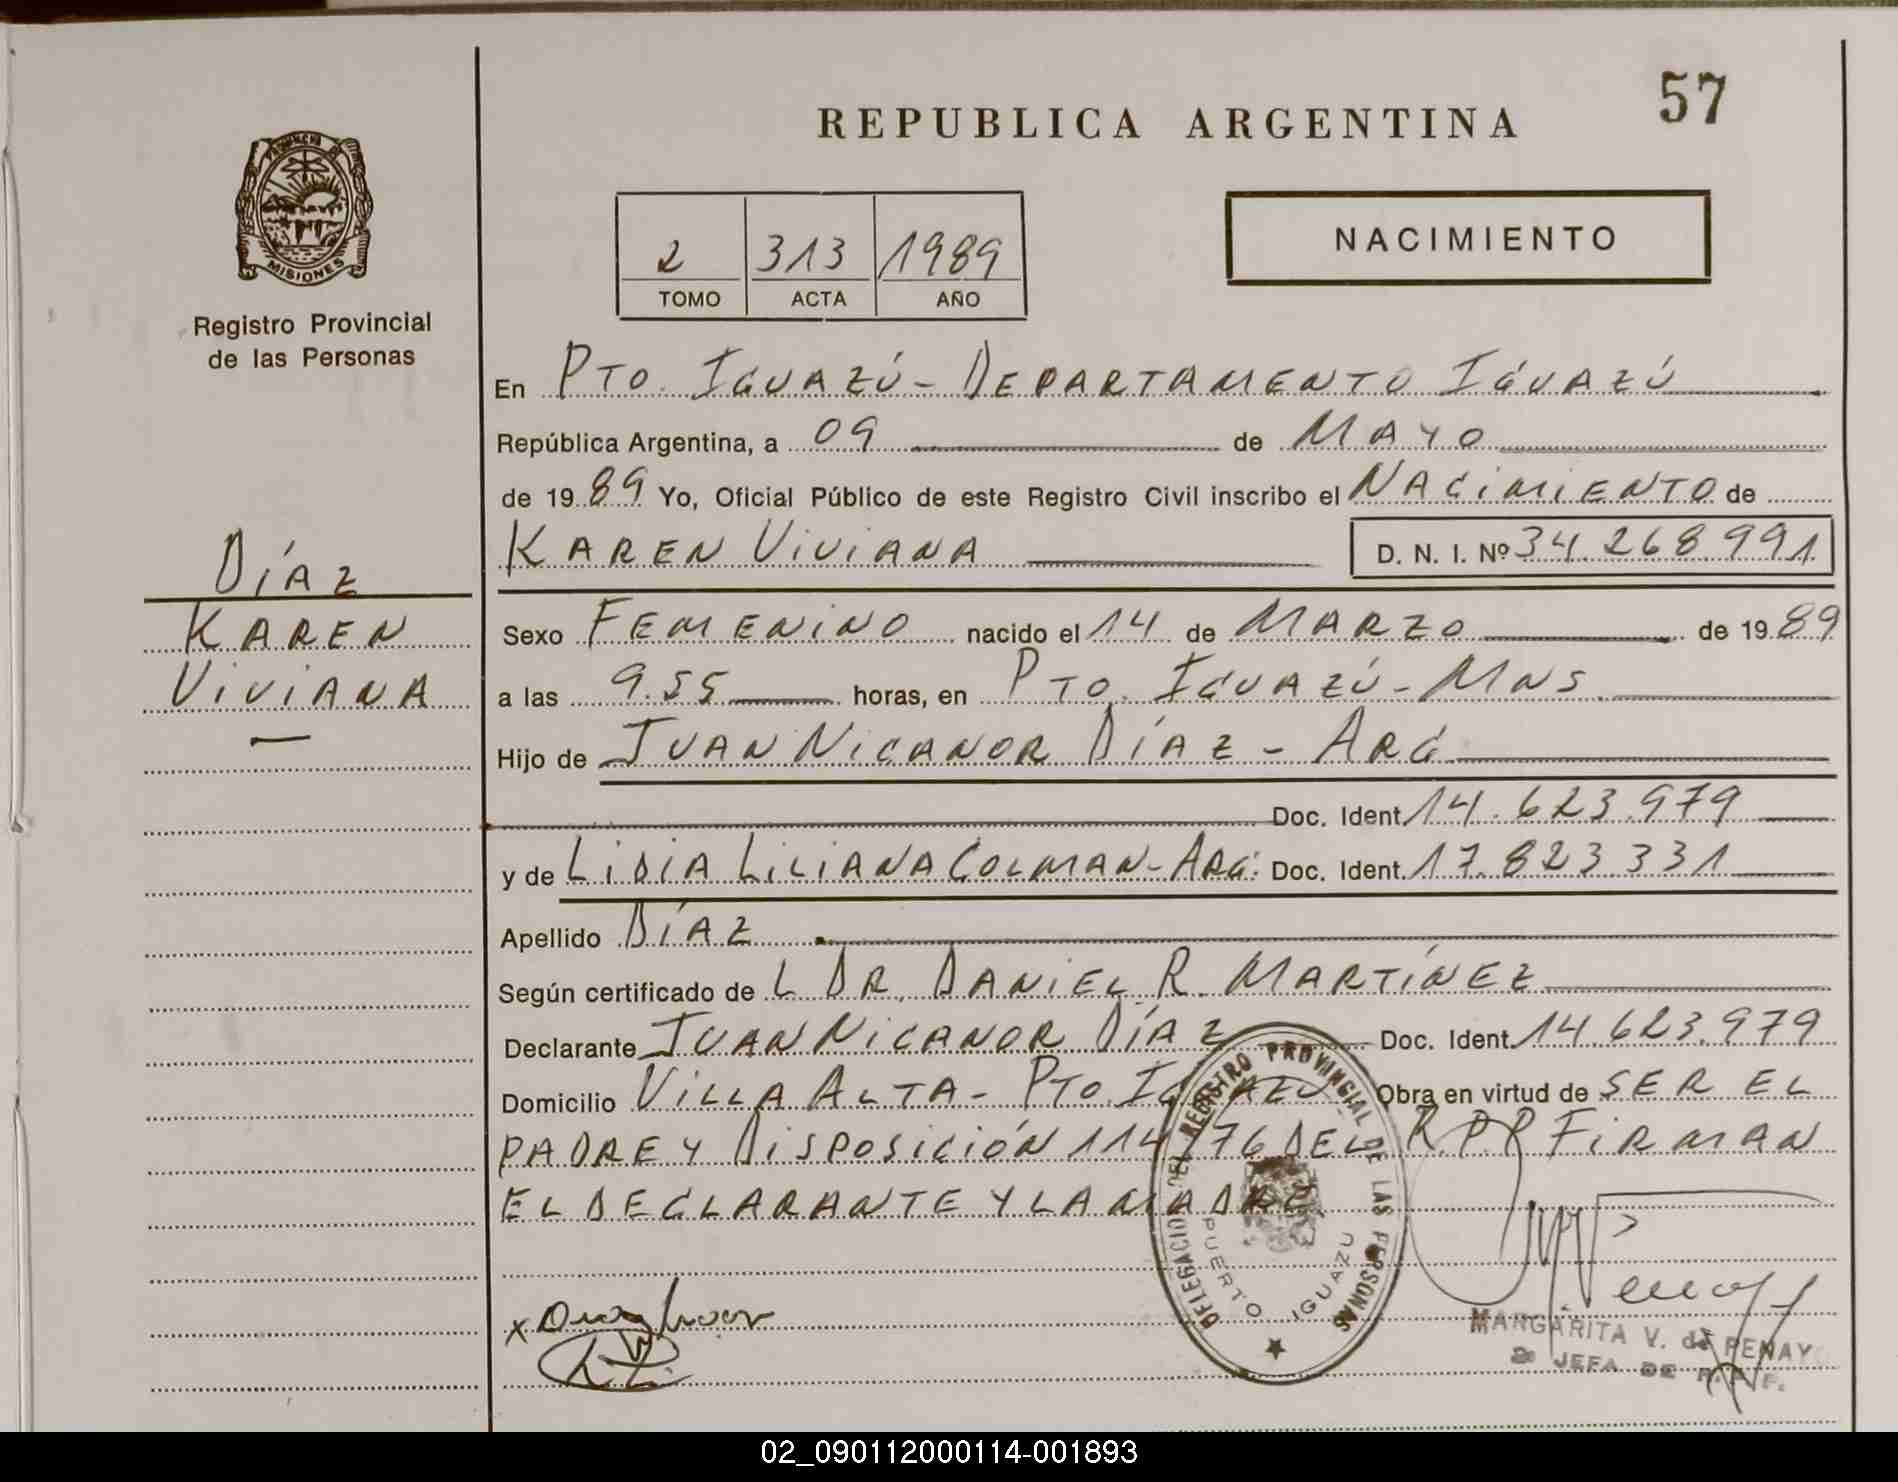 57
REPUBLICA ARGENTINA
PROVINCIA DE
MISIONES
Registro Provincial
de las Personas
2 313 1989
TOMO ACTA AÑO
NACIMIENTO
En PTO. IGUAZÚ - DEPARTAMENTO IGUAZÚ
República Argentina, a 09 de MAYO
de 1989 Yo, Oficial Público de este Registro Civil inscribo el NACIMIENTO de
KAREN VIVIANA D. N. I. Nº 34.268.991
DÍAZ
KAREN
VIVIANA
Sexo FEMENINO nacido el 14 de MARZO de 1989
a las 9.55 horas, en PTO. IGUAZÚ - MNS
Hijo de JUAN NICANOR DÍAZ - ARG
Doc. Ident. 14.623.979
y de LIDIA LILIANA COLMAN - ARG. Doc. Ident. 17.823.331
Apellido DÍAZ
Según certificado de L DR. DANIEL R. MARTÍNEZ
Declarante JUAN NICANOR DÍAZ Doc. Ident. 14.623.979
Domicilio VILLA ALTA - PTO. IGUAZU Obra en virtud de SER EL
PADRE Y DISPOSICIÓN 114/76 DEL R.P.P FIRMAN
EL DECLARANTE Y LA MADRE
DELEGACION DEL REGISTRO PROVINCIAL DE LAS PERSONAS
PUERTO IGUAZU
MARGARITA V. de PENAYO
JEFA DE R.P.P.
02_090112000114-001893